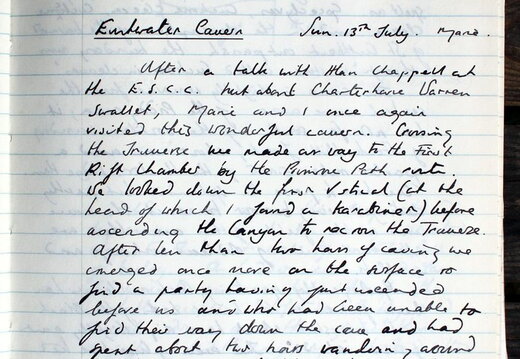 Emdwater Cavern Sun. 13th July. Marie.
After a talk with Alan Chappell at
the E.S.C.C. hut about Charterhouse Warren
Swallet, Marie and I once again
visited this wonderful cavern. Crossing
the Traverse we made our way to the First
Rift Chamber by the Primrose Path route
we looked down the first vertical (at the
head of which I found a karabiner) before
ascending the Canyon to recross the Traverse.
After less than two hours of caving we
emerged once more on the surface to
find a party having just ascended
before us and who had been unable to
find their way down the cave and had
spent about two hours wandering around